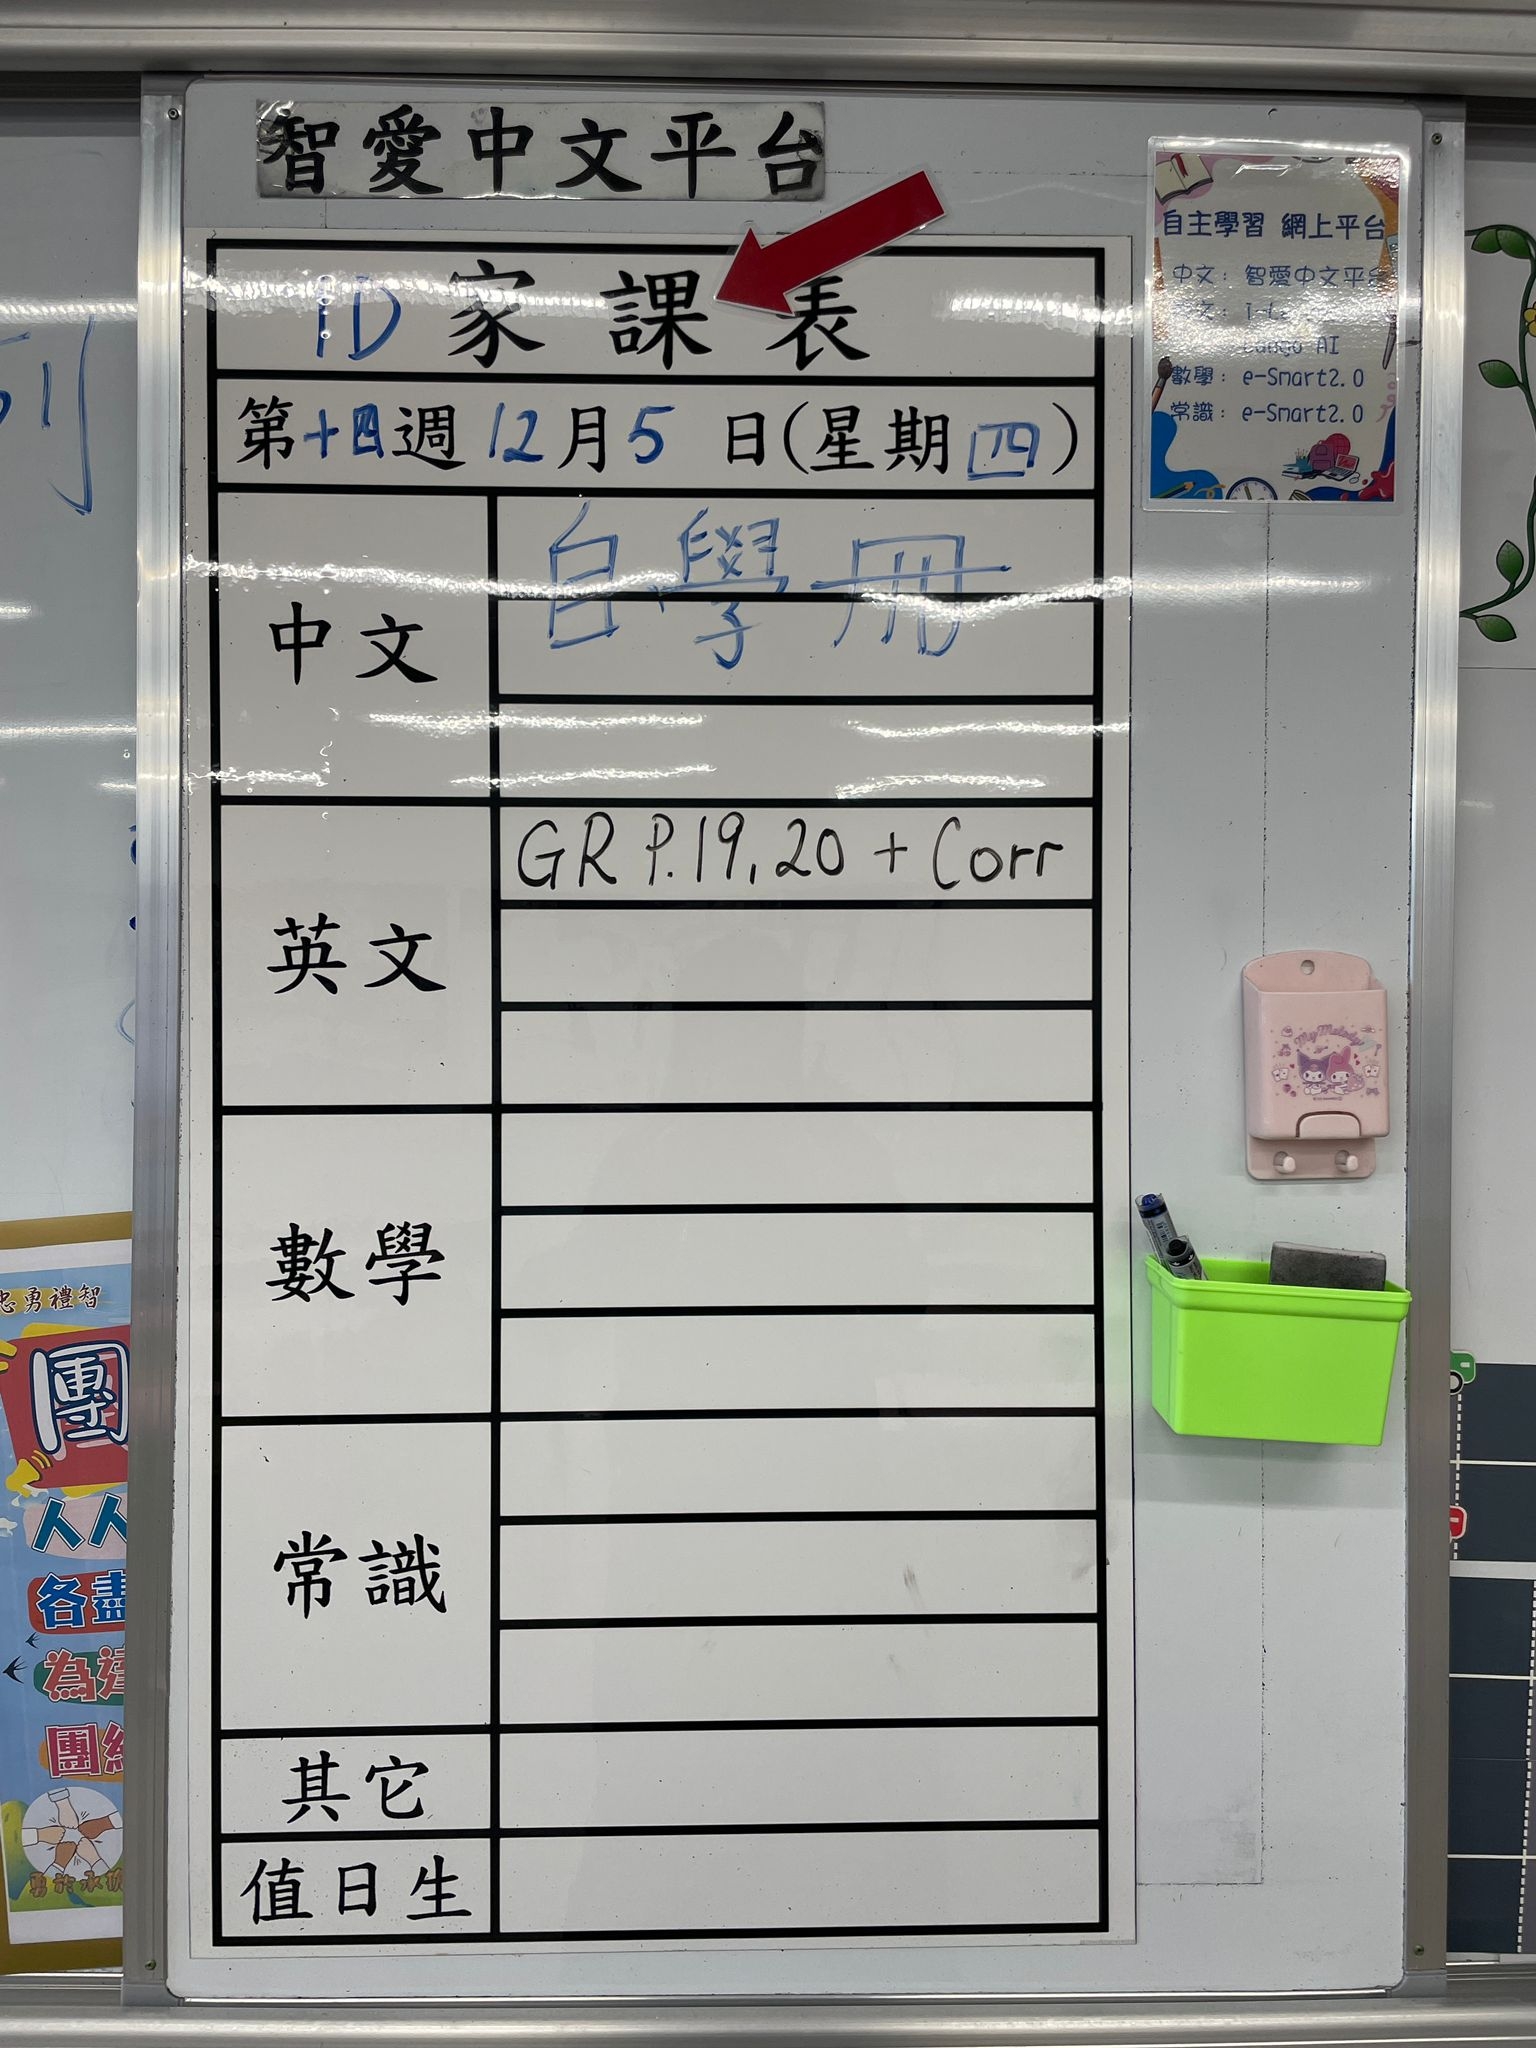 智愛中文平台
1D 家課表
第十四週 12月5日(星期四)
中文
自學冊
英文
GR P.19,20 + Corr
數學
常識
其它
值日生
自主學習 網上平台
中文：智愛中文平台
AI
數學：e-Smart2.0
常識：e-Smart2.0
My Melody
忠勇禮智
團
人人
各盡
為達
團結